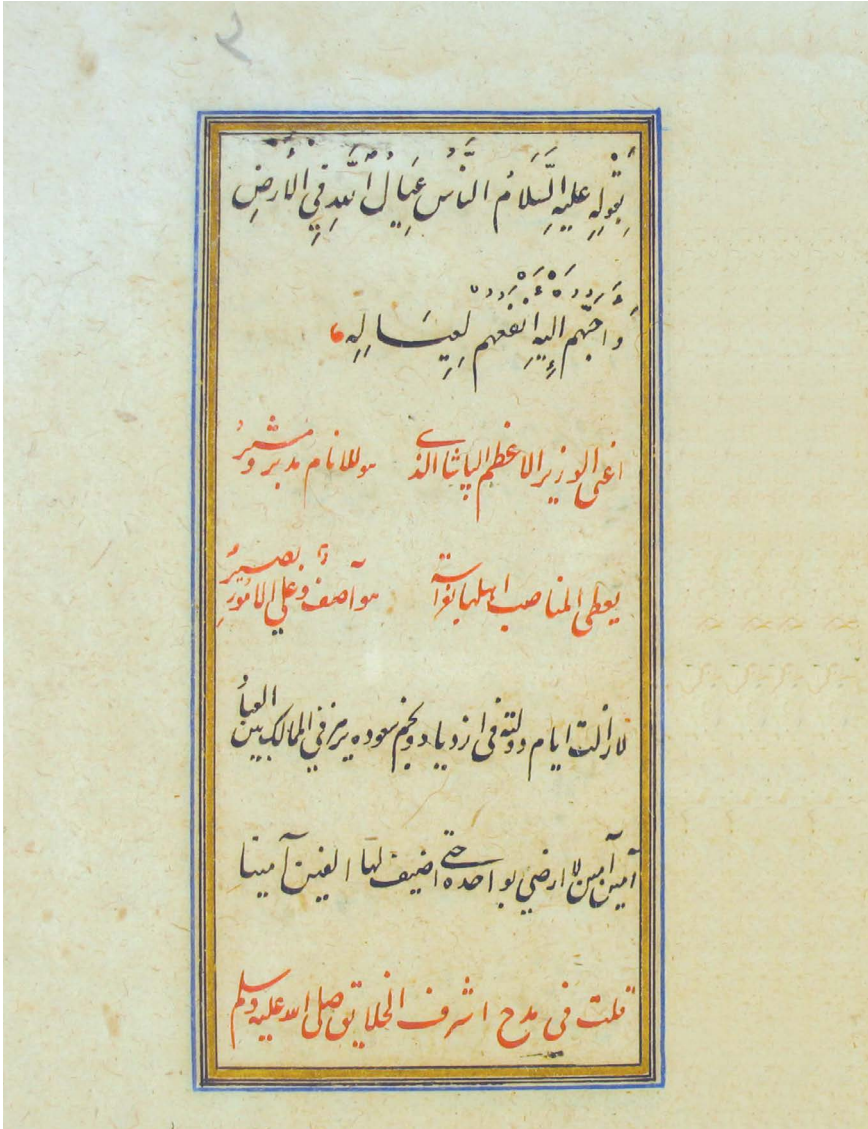 ٢
بِقَولِهِ عليهِ السَّلَامُ النَّاسُ عِيَالُ اللّٰهِ فِي الأَرضِ
وَاَحَبُّهم اِليهِ اَنفَعُهم لِعِيَالِهِ
اعنى الوزير الاعظم الپاشا الذى هو للانام مدبر ومشيرُ
يعطى المناصب اهلها بفراسة هو آصف وعلى الامُورِ بصيرُ
لا زالت ايام دولته فى ازدياد ونجم سعوده يزهر في الممالك بين العبادُ
آمين آمين لا ارضى بواحدة حتى اضيف لها الفين آمينا
قلت فى مدح اشرف الخلايق صلى الله عليه وسلم